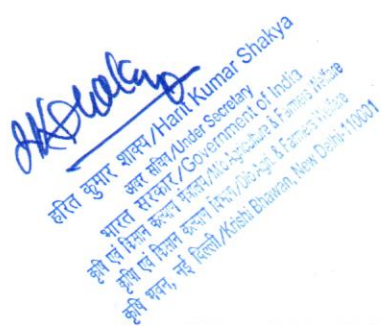 HKShakya
हरित कुमार शाक्य/Harit Kumar Shakya
अवर सचिव/Under Secretary
भारत सरकार/Government of India
कृषि एवं किसान कल्याण मंत्रालय/M/o Agriculture & Farmers Welfare
कृषि एवं किसान कल्याण विभाग/D/o Agri. & Farmers Welfare
कृषि भवन, नई दिल्ली/Krishi Bhawan, New Delhi-110001